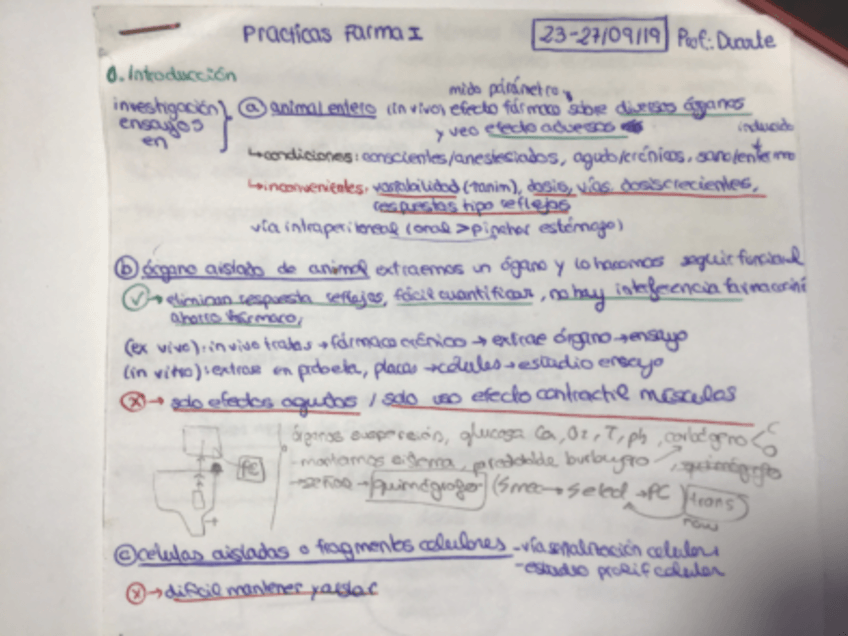 Practicas Farma I
23-27/09/19 Prof: Duarte
0. Introducción
investigación ensayos en
a) animal entero (in vivo) efecto fármaco sobre diversos órganos
mido parámetro
y veo efecto adversos
inducido
↳condiciones: conscientes/anestesiados, agudo/crónicos, sano/enfermo
↳inconvenientes, variabilidad (tanim), dosis, vías, dosis crecientes,
respuestas tipo reflejos
vía intraperitoneal (oral > pinchar estómago)
b) órgano aislado de animal extraemos un órgano y lo hacemos seguir funcional
✓→ eliminan respuesta reflejos, fácil cuantificar, no hay interferencia farmacociné
ahorro fármaco,
(ex vivo): in vivo tratas → fármaco crónico → extrae órgano → ensayo
(in vitro): extrae en probeta, placas → células → estudio ensayo
x→ solo efectos agudos / solo uso efecto contractil músculos
órganos suspensión, glucosa Ca, O2, T, ph, carbógeno
PC
burbujeo
quimógrafo
→ señal → quimógrafo (Smec → Select → PC) trans
c) celulas aisladas o fragmentos celulares - vía señalización celular
- estudio prolif celular
x→ dificil mantener y aislar